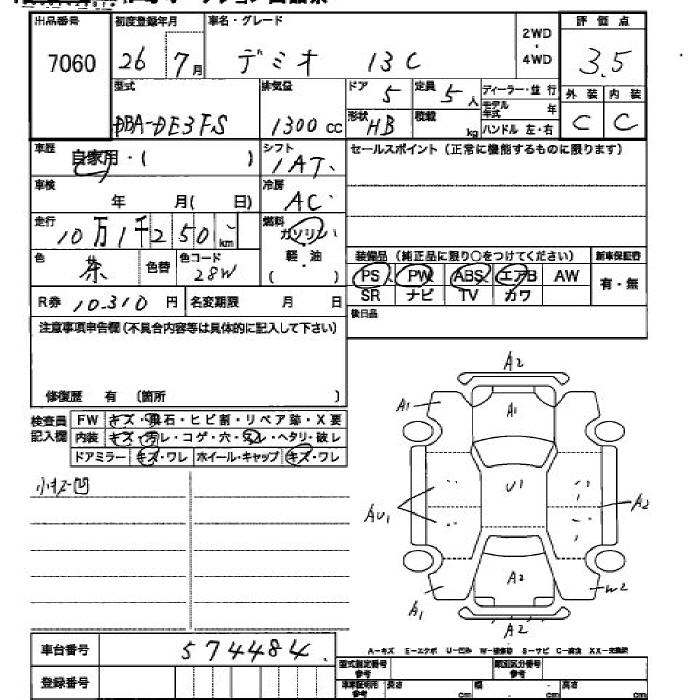 出品番号 初度登録年月 車名・グレード 2WD・4WD 評価点
7060 26 7月 デミオ 13C 3.5
型式 排気量 ドア 5 定員 5人 ディーラー・並行 外装 内装
DBA-DE3FS 1300cc 形状 HB 積載 kg モデル年式 年 ハンドル 左・右 C C
車歴 自家用・( ) シフト 1AT セールスポイント(正常に機能するものに限ります)
車検 年 月( 日) 冷房 AC
走行 10万1千250km 燃料 ガソリン
軽・油
( )
色 茶 色替 色コード 28W 装備品(純正品に限り○をつけてください) 新車保証書
PS PW ABS エアB AW 有・無
R券 10,310円 名変期限 月 日 SR ナビ TV カワ
後日品
注意事項申告欄(不具合内容等は具体的に記入して下さい)
修復歴 有 (箇所 )
検査員記入欄 FW キズ・飛石・ヒビ割・リペア跡・X要
内装 キズ・汚レ・コゲ・穴・スレ・ヘタリ・破レ
ドアミラー キズ・ワレ ホイール・キャップ キズ・ワレ
小キズ凹
A2
A1 A1
AU1 U1 A2
A2
A1 W2
A2
A-キズ E-エクボ U-凹み W-補修跡 S-サビ C-腐食 XX-交換済
車台番号 574484
登録番号
型式指定番号 参考 類別区分番号 参考
車車証明用 参考 長さ cm 幅 cm 高さ cm